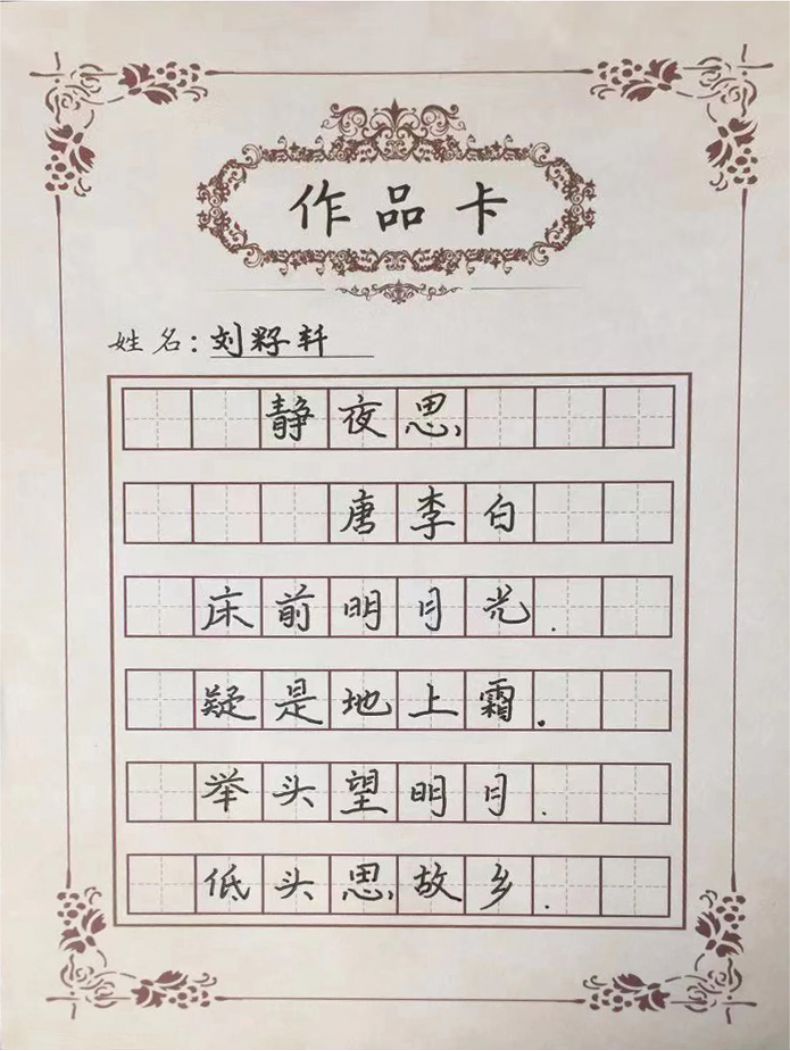 作品卡
姓名:刘籽轩
静夜思
唐李白
床前明月光.
疑是地上霜.
举头望明月.
低头思故乡.